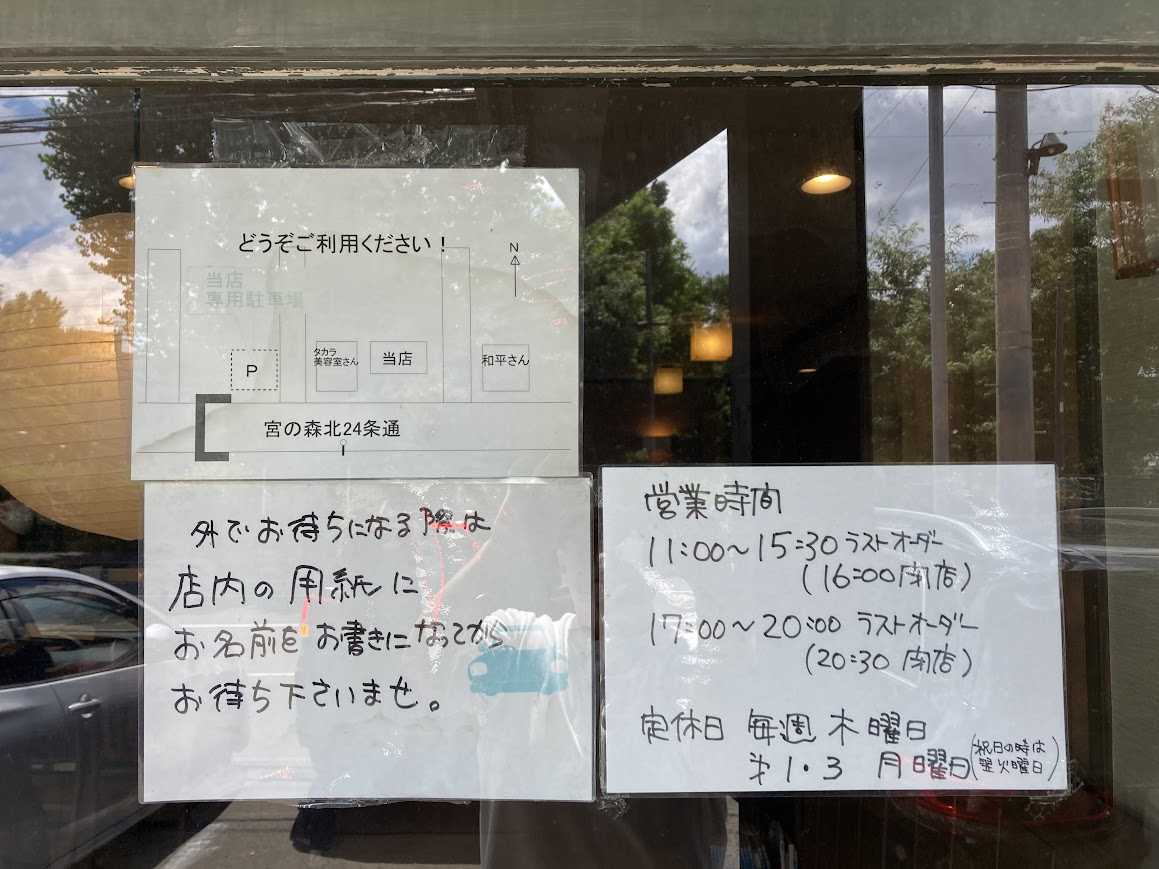 どうぞご利用ください！
N
当店
専用駐車場
P
タカラ
美容室さん
当店
和平さん
宮の森北24条通
外でお待ちになる際は
店内の用紙に
お名前をお書きになってから
お待ち下さいませ。
営業時間
11:00〜15:30 ラストオーダー
(16:00閉店)
17:00〜20:00 ラストオーダー
(20:30 閉店)
定休日 毎週 木曜日
才1・3 月曜日(祝日の時は
翌火曜日)